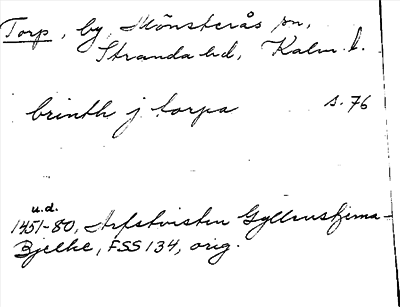 Torp, by, Mönsterås sn,
Stranda hd, Kalm. l.
brinth j torpa s. 76
u.d.
1451-80, Arfstvisten Gyllenstjerna-
Bjelke, FSS 134, orig.